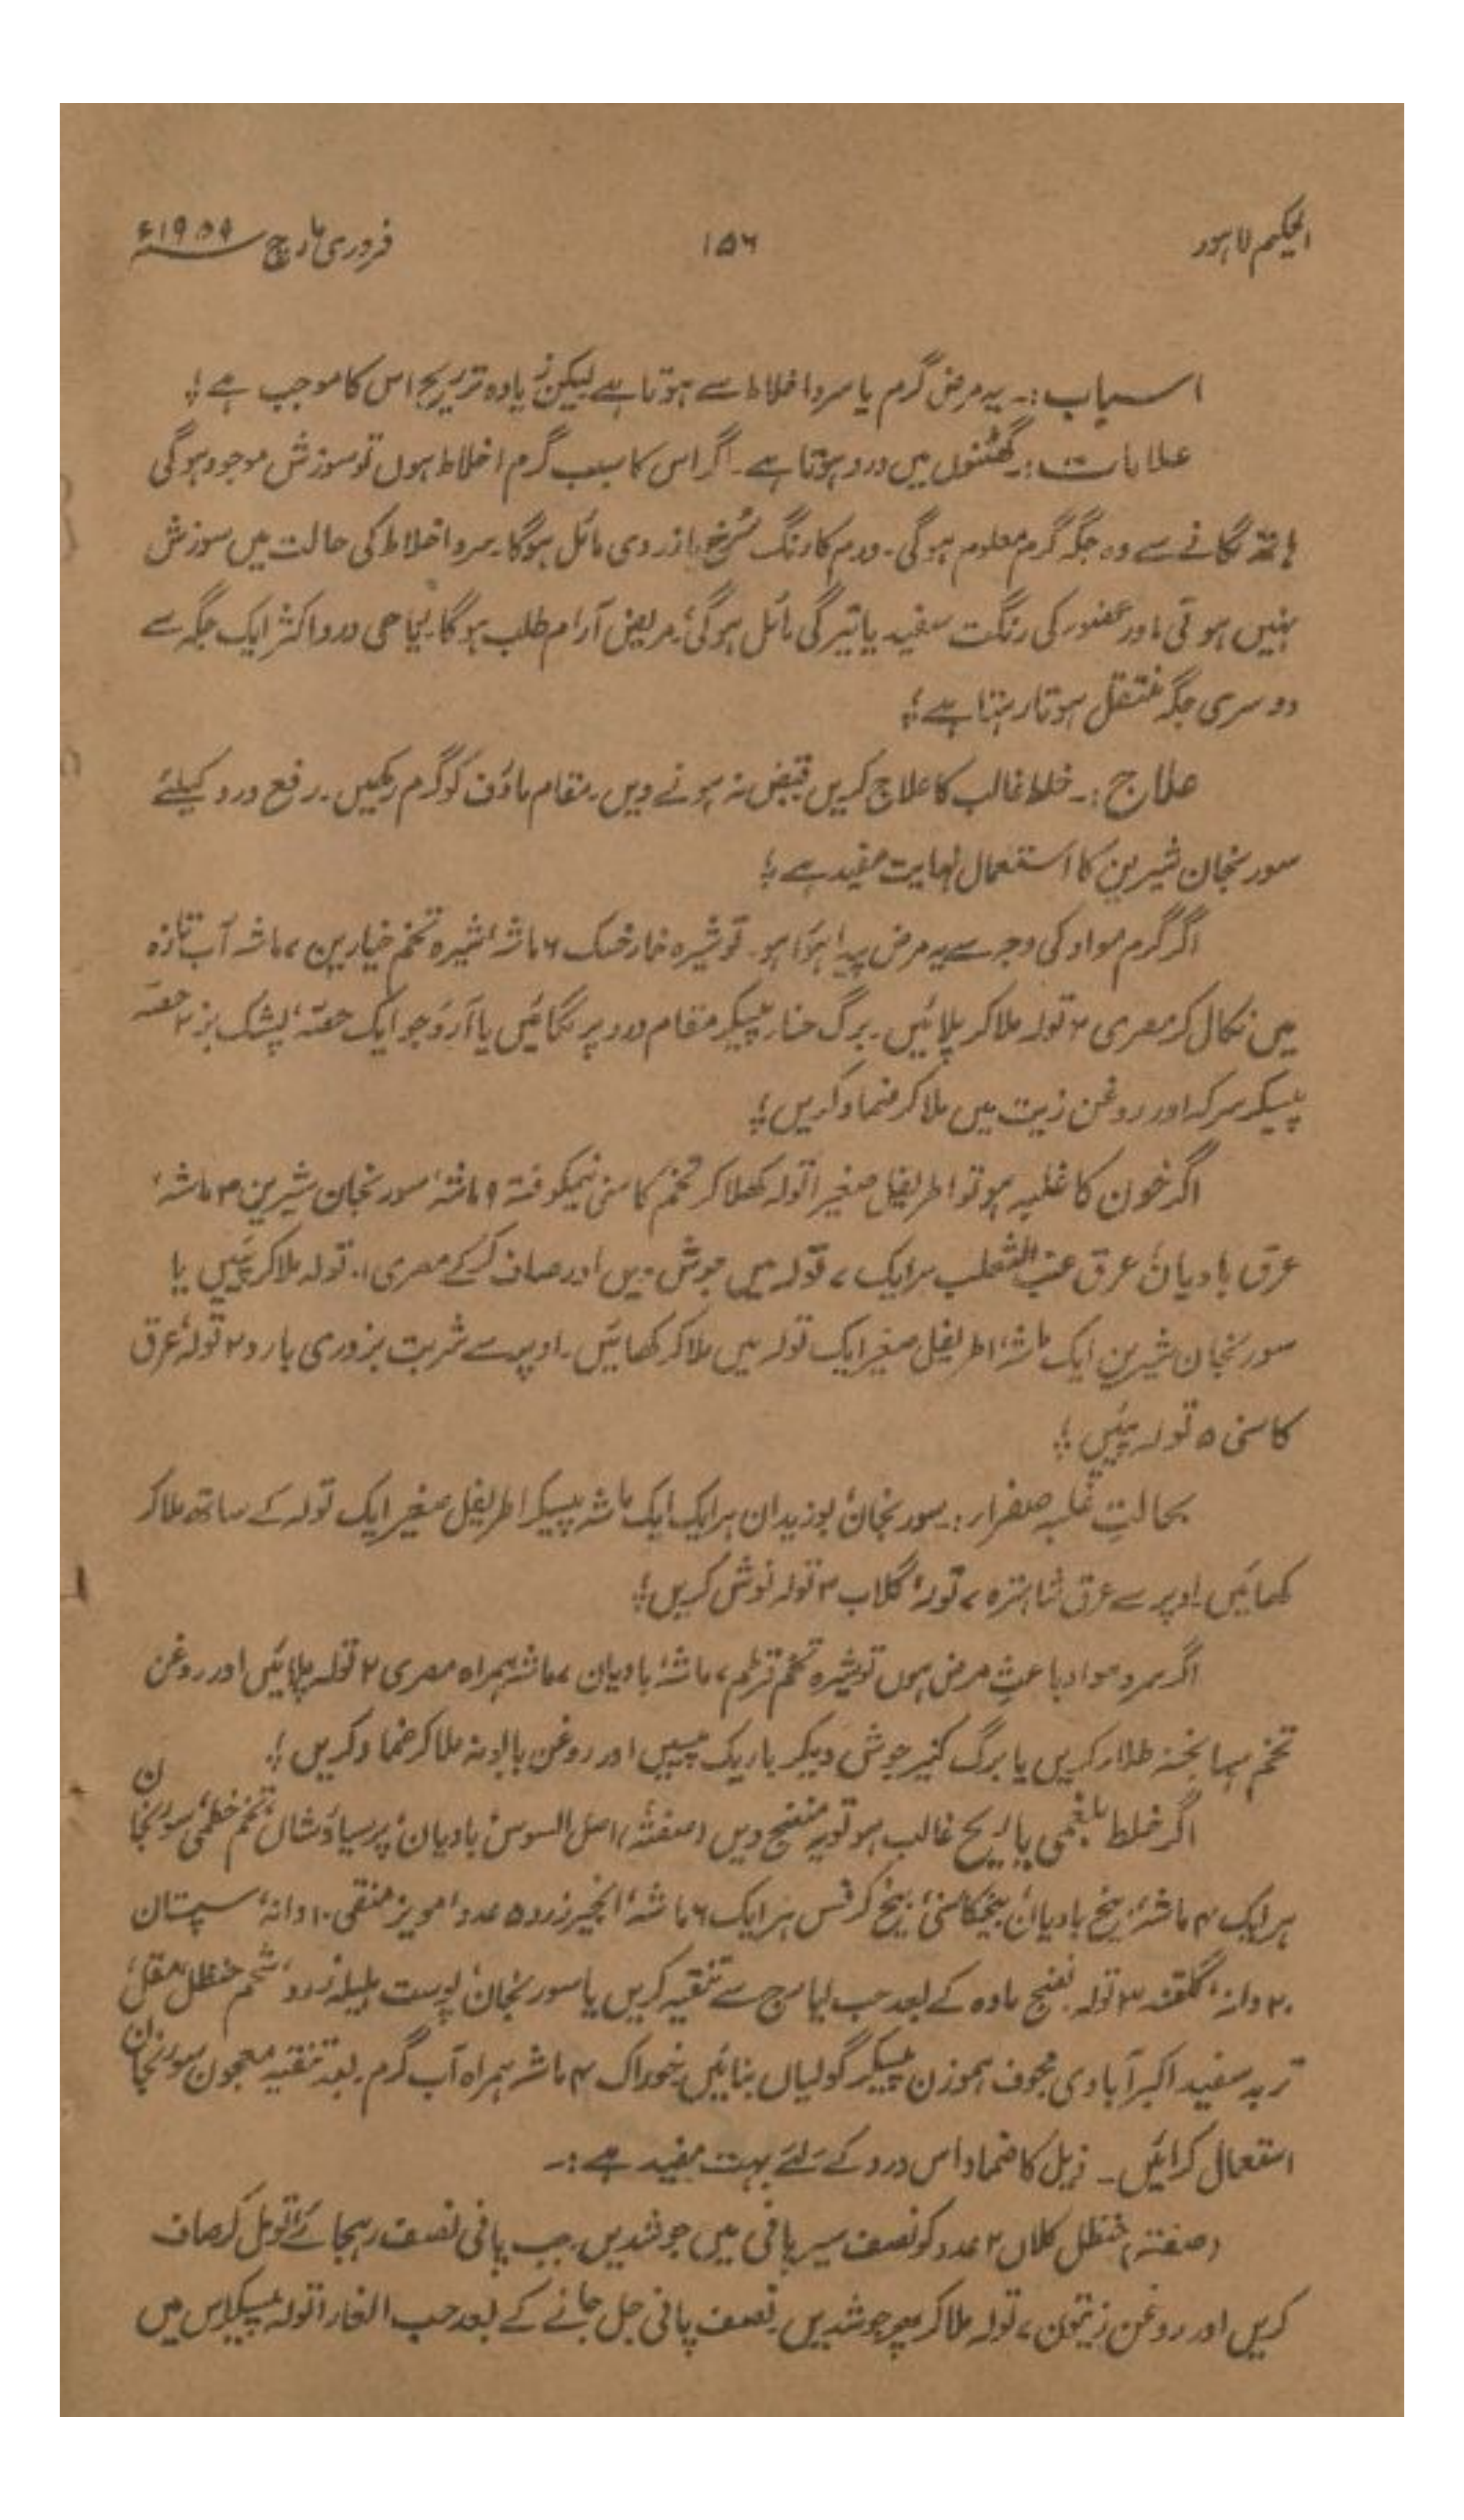 الحکیم لاہور ۱۵۶ فروری مارچ ۱۹۵۹ء
اسباب:۔ یہ مرض گرم یا سرد اخلاط سے ہوتا ہے لیکن زیادہ تر ریح اس کا موجب ہے؛
علامات:۔ گھٹنوں میں درد ہوتا ہے۔ اگر اس کا سبب گرم اخلاط ہوں تو سوزش موجود ہوگی
ہاتھ لگانے سے وہ جگہ گرم معلوم ہوگی۔ ورم کا رنگ سُرخ یا زردی مائل ہوگا۔ سرد اخلاط کی حالت میں سوزش
نہیں ہوتی اور عضو کی رنگت سفید یا تیرگی مائل ہوگی، مریض آرام طلب ہوگا۔ ریاحی درد اکثر ایک جگہ سے
دوسری جگہ منتقل ہوتا رہتا ہے؛
علاج:۔ خلط غالب کا علاج کریں قبض نہ ہونے دیں۔ مقام ماؤف کو گرم رکھیں۔ رفع درد کیلئے
سورنجان شیریں کا استعمال نہایت مفید ہے؛
اگر گرم مواد کی وجہ سے یہ مرض پیدا ہوَا ہو۔ تو شیرہ خارخسک ۶ ماشہ، شیرہ تخم خیارین ۷ ماشہ آب تازہ
میں نکال کر مصری ۲ تولہ ملا کر پلائیں۔ برگ حنا پیسکر مقام درد پر لگائیں یا آردِ جو ایک حصّہ، پشک بز ۲ حصّہ
پیسکر سرکہ اور روغن زیت میں ملا کر ضماد کریں؛
اگر خون کا غلبہ ہو تو اطریفل صغیر ۱ تولہ کھلا کر تخم کاسنی نیمکوفتہ ۹ ماشہ، سورنجان شیریں ۳ ماشہ،
عرق بادیان، عرق عنب الثعلب ہر ایک ۷ تولہ میں جوش دیں اور صاف کرکے مصری ۱۰ تولہ ملا کر پئیں یا
سورنجان شیریں ایک ماشہ، اطریفل صغیر ایک تولہ میں ملا کر کھائیں۔ اوپر سے شربت بزوری بارد ۲ تولہ، عرق
کاسنی ۵ تولہ پئیں؛
بحالتِ غلبہ صفراء:۔ سورنجان، بوزیدان ہر ایک ایک ماشہ پیسکر اطریفل صغیر ایک تولہ کے ساتھ ملا کر
کھائیں۔ اوپر سے عرق شاہترہ ۷ تولہ، گلاب ۳ تولہ نوش کریں؛
اگر سرد مواد باعثِ مرض ہوں تو شیرہ تخم قرطم ۷ ماشہ، بادیان ۷ ماشہ ہمراہ مصری ۲ تولہ پلائیں اور روغن
تخم سہانجنہ طلاء کریں یا برگ کنیر جوش دیکر باریک پیسیں اور روغن بابونہ ملا کر ضماد کریں؛
اگر خلط بلغمی یا ریح غالب ہو تو یہ منضج دیں (صفتہ) اصل السوس، بادیان، پرسیاؤشاں، تخم خطمی، سورنجان
ہر ایک ۴ ماشہ، بیخ بادیان، بیخکاسنی، بیخ کرفس ہر ایک ۶ ماشہ، انجیر زرد ۵ عدد، مویز منقی ۱۰ دانہ، سپستان
۲۰ دانہ، گلقند ۳ تولہ۔ نضج مادہ کے بعد حب ایارج سے تنقیہ کریں یا سورنجان، پوست ہلیلہ زرد، شحم حنظل، مقل،
تربد سفید اکبرآبادی مجوف ہموزن پیسکر گولیاں بنائیں، خوراک ۴ ماشہ ہمراہ آب گرم۔ بعد تنقیہ معجون سورنجان
استعمال کرائیں۔ ذیل کا ضماد اس درد کے لئے بہت مفید ہے:۔
(صفتہ) حنظل کلاں ۲ عدد کو نصف سیر پانی میں جوشدیں۔ جب پانی نصف رہجائے تو مل کر صاف
کریں اور روغن زیتون ۷ تولہ ملا کر پھر جوشدیں۔ نصف پانی جل جانے کے بعد حب الغار ۱ تولہ پیسکر اس میں